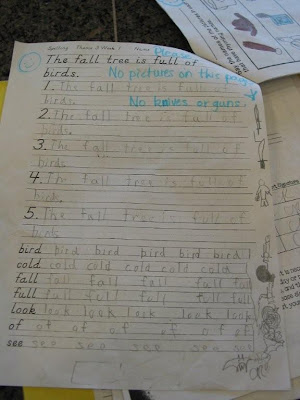 Spelling Theme 3 Week 1 Name
Please
The fall tree is full of
birds. No pictures on this page
1. The fall tree is full of
birds. No knives or guns.
2. The fall tree is full of
birds.
3. The fall tree is full of
birds.
4. The fall tree is full of
birds.
5. The fall tree is full of
birds
bird bird bird bird bird bird
cold cold cold cold cold cold
fall fall fall fall fall fall
full full full full full full
look look look look look look
of of of of of of
see see see see see see